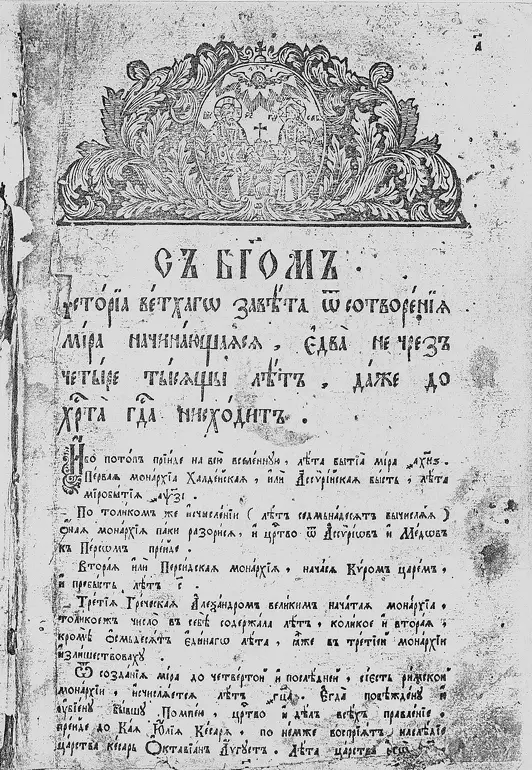 а҃
СЪ БГ҃ОМЪ.
Исторі́а ве́тхагѡ завѣ́та ѿ сотворе́нїѧ
мі́ра начина́ющаѧсѧ, є҆два̀ не чрезъ
четы́ре ты́сѧщы лѣ́тъ, да́же до
хрⷭ҇та̀ гдⷭ҇а нисхо́дитъ.
И҆́бо пото́пъ прїи́де на всю̀ вселе́нную, лѣ́та бытїа̀ мі́ра
Пе́рваѧ мона́рхїа Халде́йскаѧ, и҆лѝ А҆ссѷрі́йскаѧ бы́сть, лѣ́та
міробытїѧ̀
По толи́комъ же и҆счисле́нїи ( лѣ́тъ седмьна́десѧтъ вычислѧ́ѧ )
о҆́наѧ мона́рхїа па́ки разори́сѧ, и҆ црⷭ҇тво ѿ А҆сѷрі́ѡвъ и҆ Ми́дѡвъ
къ Пе́рсѡмъ прїи́де.
Втора́ѧ и҆лѝ Персі́дскаѧ мона́рхїа, нача́сѧ Кѵ́ромъ царе́мъ,
и҆ пребы́сть лѣ́тъ с҃.
Тре́тїѧ Гре́ческаѧ А҆леѯа́ндромъ вели́кимъ нача́таѧ мона́рхїа,
толи́коежъ число̀ въ себѣ̀ содержа́ла лѣ́тъ, коли́кое и҆ втора́ѧ,
кро́мѣ ѻ҆смьдесѧ́тъ є҆ди́нагѡ лѣ́та, ꙗ҆̀же въ тре́тїей мона́рхїи
и҆зли́шествоваху.
Ѿ созда́нїѧ мі́ра до четве́ртой и҆ послѣ́дней, сїе́сть ри́мской
мона́рхїи, и҆счислѧ́етсѧ лѣ́тъ Є҆гда̀ побѣжде́ну и҆
ᲂу҆бїе́ну бы́вшу Помпе́ю, црⷭ҇тво и҆ дѣ́лъ всѣ́хъ правле́нїе
прїи́де до Ка́ѧ І҆ꙋ́лїа Ке́сарѧ, по не́мже воспрїѧ́тъ наслѣ́дїе
ца́рства ке́сарь Ѻ҆ктавїа́нъ А҆́ѵгустъ. Лѣ́та ца́рства